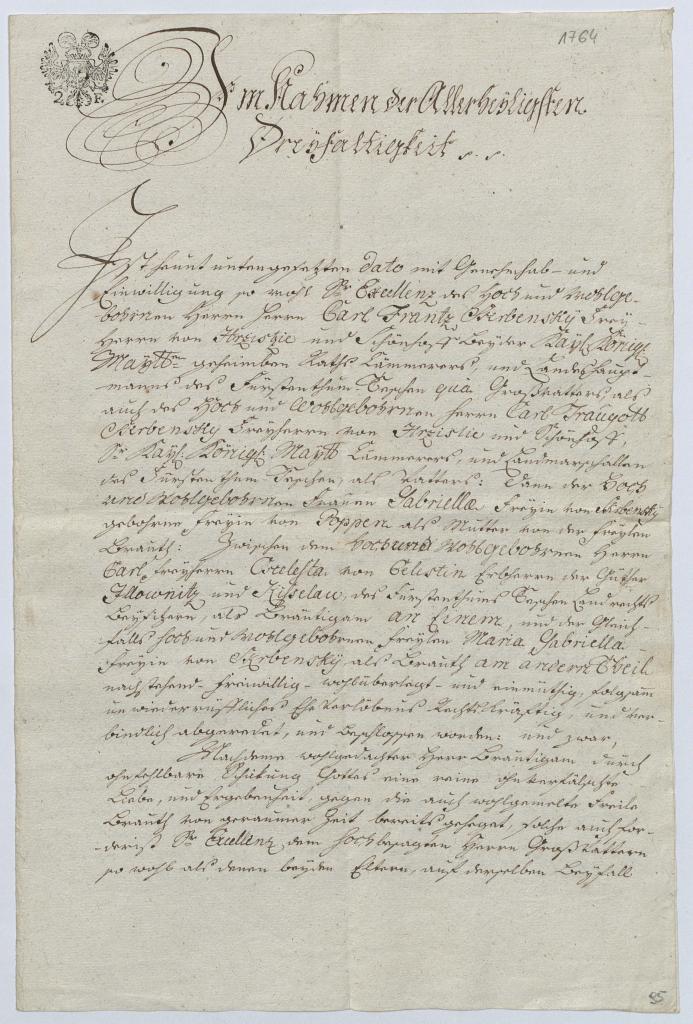 1764
2. F.
Im Nahmen der Allerheyligsten
Dreyfaltigkeit
Ist heunt untengesetzten dato mit Genehmhab- und
Einwilligung so wohl Sr Excellenz des Hoch und Wohlge-
bohrnen Herrn Herrn Carl Frantz Skrbensky Frey-
Herrn von Hrzistie und Schönhoff Beyder Kayl. Königl.
Maytt geheimben Raths Cämmerers, und Landes Haupt-
manns des Fürstenthum Teschen qua Großvatters als
auch des Hoch und Wohlgebohrnen Herrn Carl Traugott
Skrbensky Freyherrn von Hrzistie und Schönhoff,
Sr Kayl. Königl. Maytt Cämmerers, und Landmarschallen
des Fürstenthum Teschen, als Vatters: dann der Hoch
und Wohlgebohrnen Frauen Gabriella Freyin von Skrbensky
gebohrne Freyin von Poppen als Mutter von der Freylen
Brauth: Zwischen dem Hoch und Wohlgebohrnen Herrn
Carl Freyherrn Celesta von Celestin Erbherrn der Gütter
und Kisselau, des Fürstenthums Teschen Landrechts
Beysitzern, als Bräutigam an Einem, und der Gleich-
falls Hoch und Wohlgebohrnen Freylen Maria Gabriella
Freyin von Skrbensky als Brauth am andern Theil
nachstehend- freiwillig- wohlüberlegt- und einmüthig, folgsamm
unwiederrufliches Ehe Verlöbnus Rechtskräftig, und ver-
bindlich abgeredet, und beschlossen worden: und zwar,
Nachdeme wohlgedachter Herr Bräutigam durch
ohnfehlbare Schikung Gottes eine reine ohnverfälschte
Liebe, und Ergebenheit, gegen die auch wohlgemelte Freile
Brauth von geraumer Zeit bereits geheget, solche auch for-
derist Sr Excellenz dem Hochbesagten Herrn Großvattern
so wohl als denen beyden Eltern, auf derselben Beyfall
95